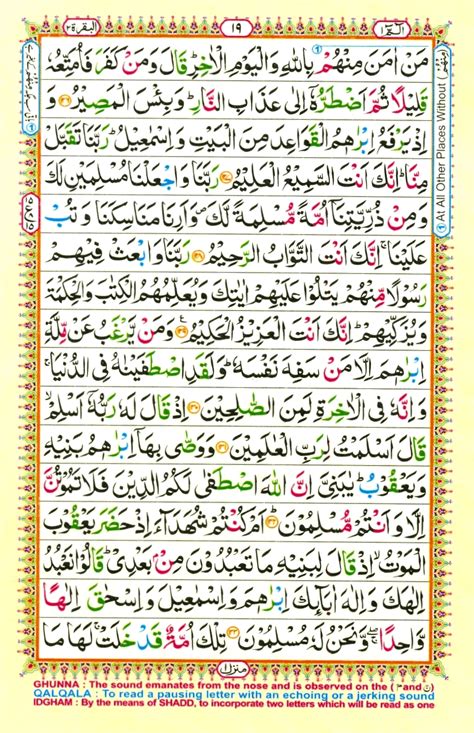 البقرة ٢
١٩
الٓمّٓ ١
مَنْ اٰمَنَ مِنْهُمْ بِاللّٰهِ وَالْيَوْمِ الْاٰخِرِؕ قَالَ وَمَنْ كَفَرَ فَاُمَتِّعُهٗ
قَلِيْلًا ثُمَّ اَضْطَرُّهٗۤ اِلٰى عَذَابِ النَّارِؕ وَبِئْسَ الْمَصِيْرُ ﴿۱۲۶﴾ وَ
اِذْ يَرْفَعُ اِبْرٰهٖمُ الْقَوَاعِدَ مِنَ الْبَيْتِ وَاِسْمٰعِيْلُؕ رَبَّنَا تَقَبَّلْ
مِنَّاؕ اِنَّكَ اَنْتَ السَّمِيْعُ الْعَلِيْمُ ﴿۱۲۷﴾ رَبَّنَا وَاجْعَلْنَا مُسْلِمَيْنِ لَكَ
وَمِنْ ذُرِّيَّتِنَاۤ اُمَّةً مُّسْلِمَةً لَّكَ۪ وَاَرِنَا مَنَاسِكَنَا وَتُبْ
عَلَيْنَاۚ اِنَّكَ اَنْتَ التَّوَّابُ الرَّحِيْمُ ﴿۱۲۸﴾ رَبَّنَا وَابْعَثْ فِيْهِمْ
رَسُوْلًا مِّنْهُمْ يَتْلُوْا عَلَيْهِمْ اٰيٰتِكَ وَيُعَلِّمُهُمُ الْكِتٰبَ وَالْحِكْمَةَ
وَيُزَكِّيْهِمْؕ اِنَّكَ اَنْتَ الْعَزِيْزُ الْحَكِيْمُ ﴿۱۲۹﴾ وَمَنْ يَّرْغَبُ عَنْ مِّلَّةِ
اِبْرٰهٖمَ اِلَّا مَنْ سَفِهَ نَفْسَهٗؕ وَلَقَدِ اصْطَفَيْنٰهُ فِى الدُّنْيَاۚ
وَاِنَّهٗ فِى الْاٰخِرَةِ لَمِنَ الصّٰلِحِيْنَ ﴿۱۳۰﴾ اِذْ قَالَ لَهٗ رَبُّهٗۤ اَسْلِمْۙ
قَالَ اَسْلَمْتُ لِرَبِّ الْعٰلَمِيْنَ ﴿۱۳۱﴾ وَوَصّٰى بِهَاۤ اِبْرٰهٖمُ بَنِيْهِ
وَيَعْقُوْبُؕ يٰبَنِىَّ اِنَّ اللّٰهَ اصْطَفٰى لَكُمُ الدِّيْنَ فَلَا تَمُوْتُنَّ
اِلَّا وَاَنْتُمْ مُّسْلِمُوْنَؕ ﴿۱۳۲﴾ اَمْ كُنْتُمْ شُهَدَآءَ اِذْ حَضَرَ يَعْقُوْبَ
الْمَوْتُۙ اِذْ قَالَ لِبَنِيْهِ مَا تَعْبُدُوْنَ مِنْۢ بَعْدِىْؕ قَالُوْا نَعْبُدُ
اِلٰهَكَ وَاِلٰهَ اٰبَآئِكَ اِبْرٰهٖمَ وَاِسْمٰعِيْلَ وَاِسْحٰقَ اِلٰهًا
وَّاحِدًاۖۚ وَّنَحْنُ لَهٗ مُسْلِمُوْنَ ﴿۱۳۳﴾ تِلْكَ اُمَّةٌ قَدْ خَلَتْۚ لَهَا مَا
At All Other Places Without
منزل ١
GHUNNA : The sound emanates from the nose and is observed on the (م and ن)
QALQALA : To read a pausing letter with an echoing or a jerking sound
IDGHAM : By the means of SHADD, to incorporate two letters which will be read as one